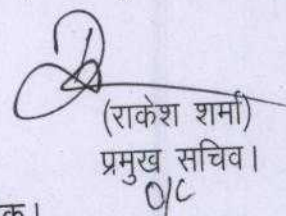 (राकेश शर्मा)
प्रमुख सचिव।
O/C
क।